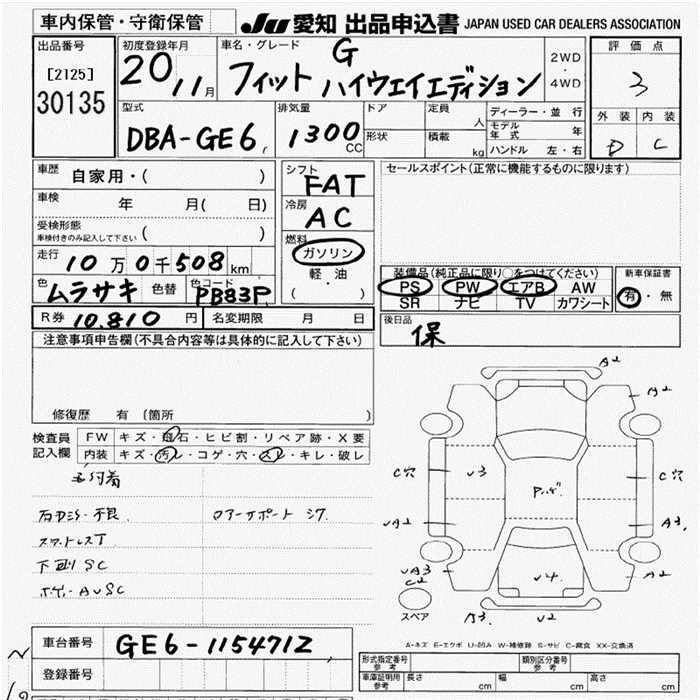 車内保管・守衛保管
JU 愛知 出品申込書 JAPAN USED CAR DEALERS ASSOCIATION
出品番号
[2125]
30135
初度登録年月
20 11月
車名・グレード
G
フィット ハイウェイエディション
2WD
・
4WD
評価点
3
外装 内装
D C
型式
DBA-GE6
排気量
1300 CC
ドア
形状
定員 人
積載 kg
ディーラー・並行
モデル年式 年
ハンドル 左・右
車歴 自家用・( )
車検 年 月( 日)
受検形態
車検付きのみ記入して下さい ( )
走行 10万0千508km
色 ムラサキ 色替 色コード PB83P
シフト
FAT
冷房
AC
燃料
ガソリン
軽・油
( )
セールスポイント(正常に機能するものに限ります)
装備品(純正品に限り○をつけてください)
PS PW エアB AW
SR ナビ TV カワシート
新車保証書
有・無
R券 10.810 円 名変期限 月 日
後日品
保
注意事項申告欄(不具合内容等は具体的に記入して下さい)
修復歴 有 〔箇所 〕
検査員
記入欄
FW キズ・飛石・ヒビ割・リペア跡・X要
内装 キズ・汚レ・コゲ・穴・スレ・キレ・破レ
スマートレス丁
下廻りSC
A2
A2
C穴
U3
C穴
A3
A2
C2
U4
U2
スペア
A-キズ E-エクボ U-凹み W-補修跡 S-サビ C-腐食 XX-交換済
車台番号 GE6-1154712
登録番号
形式指定番号
参考
類別区分番号
参考
車庫証明用
参考
長さ cm 幅 cm 高さ cm